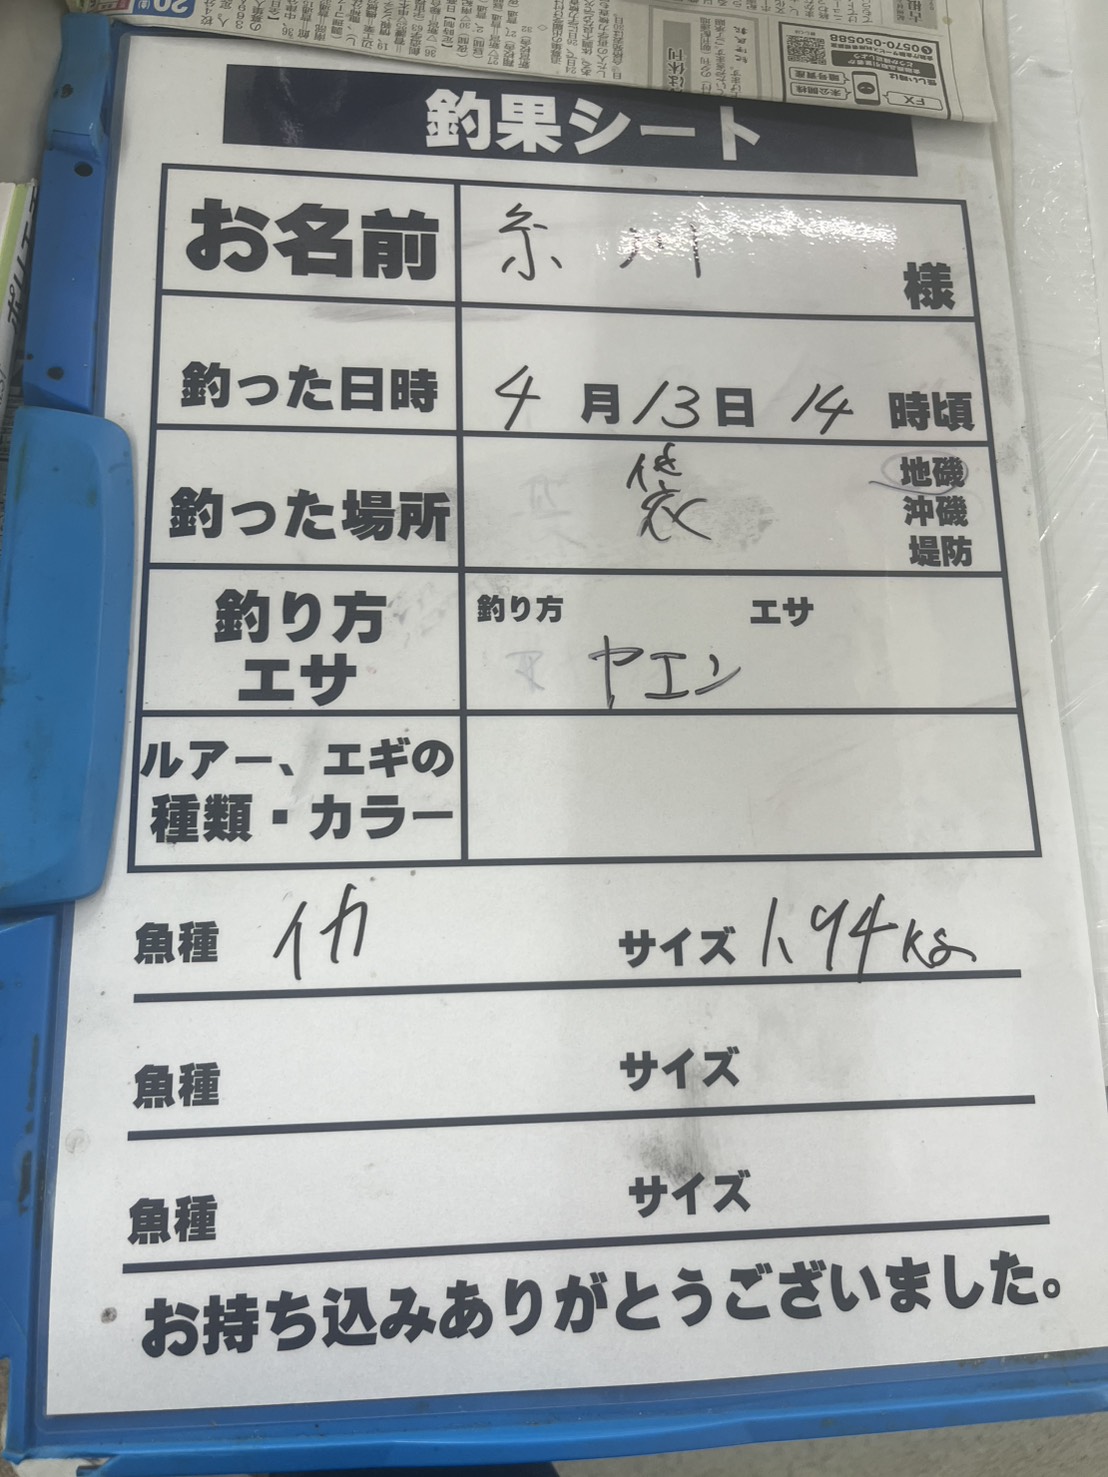 釣果シート
お名前 糸川 様
釣った日時 4月13日 14 時頃
釣った場所 袋 地磯
沖磯
堤防
釣り方 エサ
釣り方 エサ
ヤエン
ルアー、エギの
種類・カラー
魚種 イカ サイズ 1.94kg
魚種 サイズ
魚種 サイズ
お持ち込みありがとうございました。
0570-050588
FX
未公開株
暗号資産
は休刊